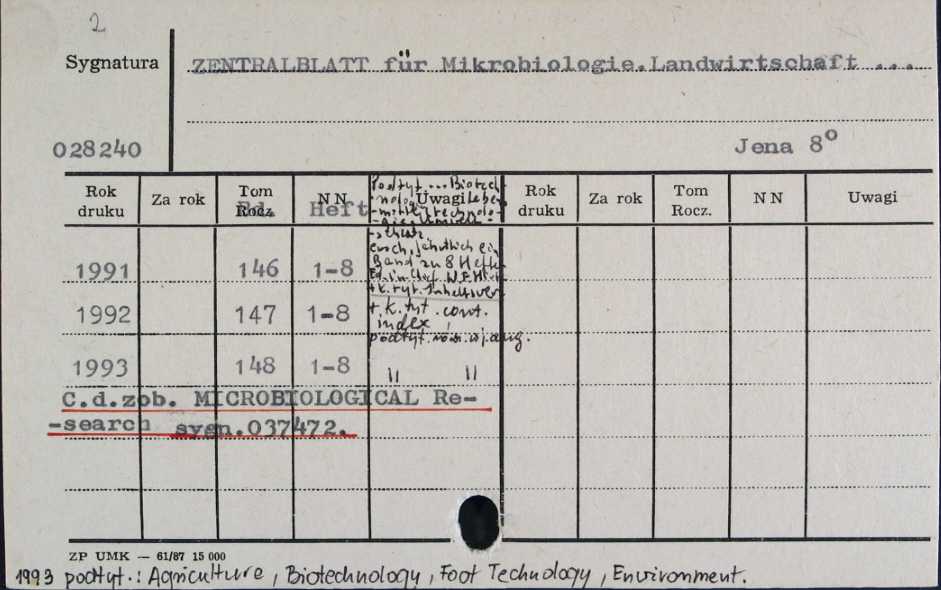 2
Sygnatura
ZENTRALBLATT für Mikrobiologie.Landwirtschaft ...
028240
Jena 8°
Rok druku Za rok Tom Rocz. Bd. N N Heft Uwagi Rok druku Za rok Tom Rocz. N N Uwagi
Podtyt. ... Biotech-
-nologie
-mitteltechnolo-
ersch. jährlich ein
Band zu 8 Hefte
1991 146 1-8
+ k. tyt. Inhaltsver.
1992 147 1-8 + k. tyt. cont.
index
podtyt. również w j. ang.
1993 148 1-8 " "
C.d.zob. MICROBIOLOGICAL Re-
-search sygn.037472.
ZP UMK — 61/87 15 000
1993 podtyt.: Agriculture, Biotechnology, Foot Technology, Environment.